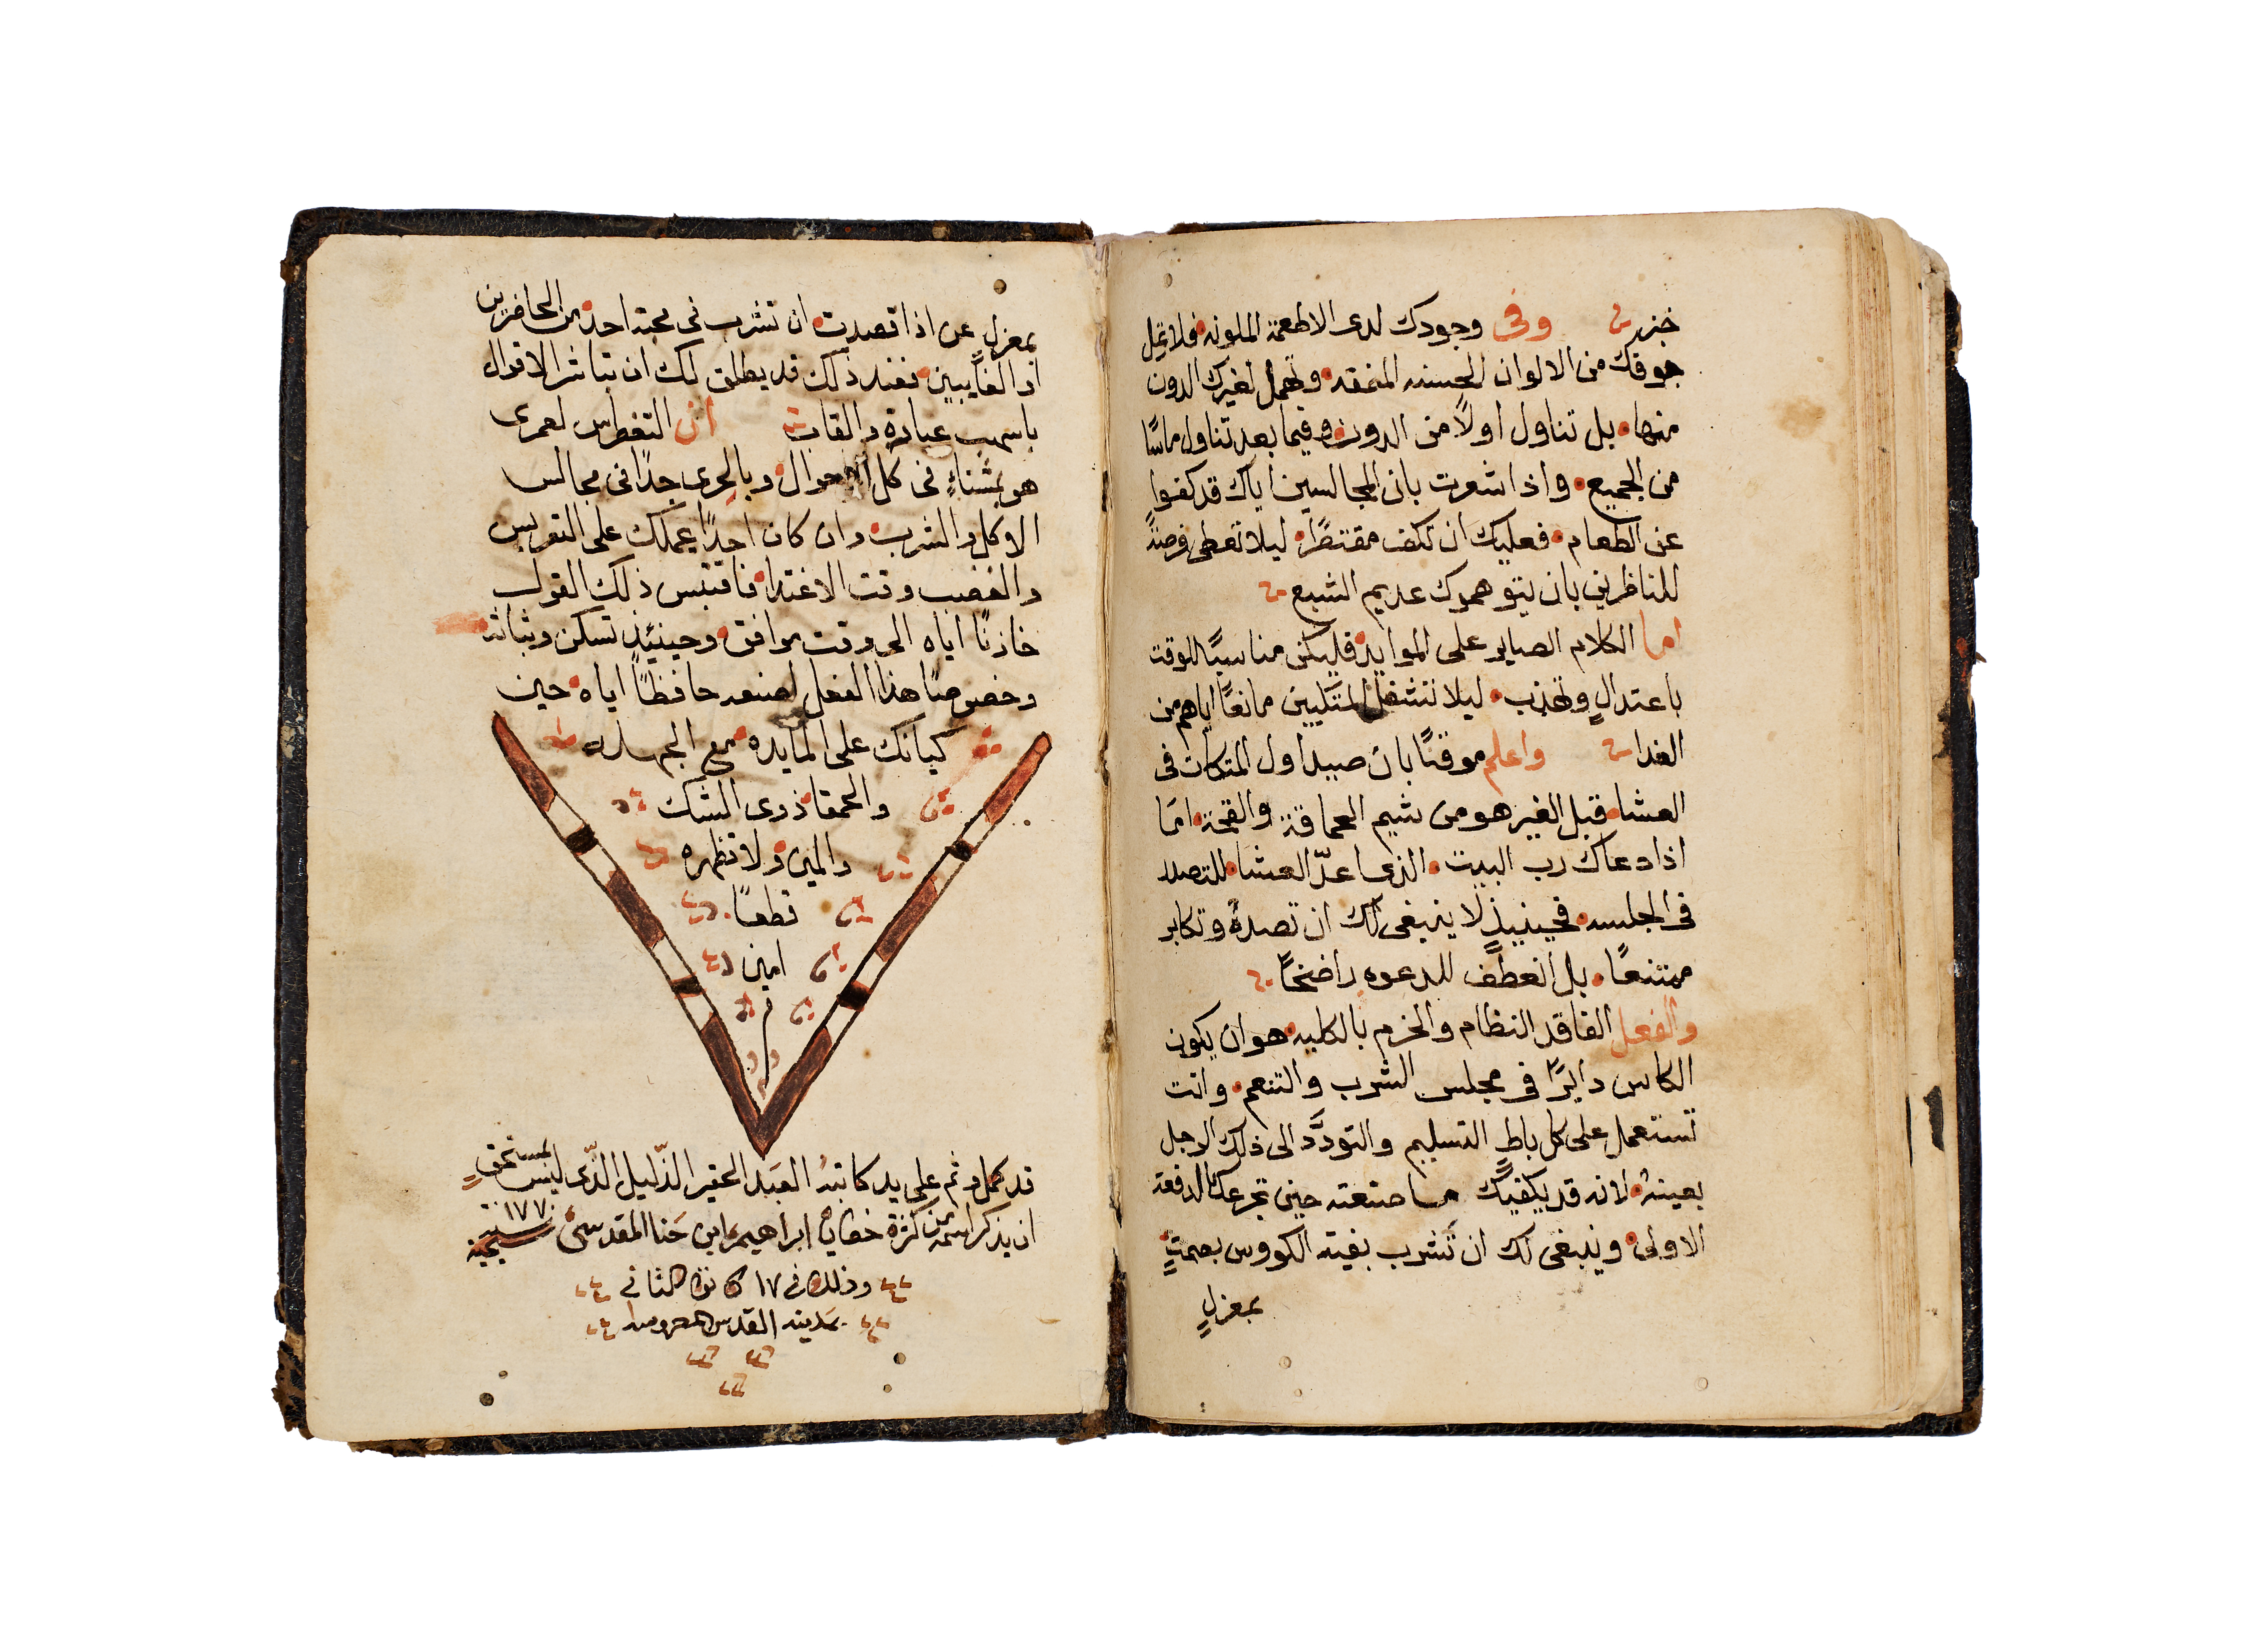 خبز وفى وجودك لدى الاطعمة الملونه فلا تمل
جوقك من الالوان الحسنه المنمقه وتهمل لغيرك الدون
منها بل تناول اولًا من الدون وفيما بعد تناول ماسًا
من الجميع واذا شعرت بان المجالسين اياك قد كفوا
عن الطعام فعليك ان تكف مقتصرًا ليلا تعطى فرصةً
للناظرين بان يتوهموك عديم الشبع
اما الكلام الصاير على الموايد فليكن مناسبًا للوقت
باعتدالٍ وتهذب ليلا تشغل المتكيين مانعًا اياهم من
الغدا واعلم موقنًا بان صيد اول المتكات فى
العشا قبل الغير هو من شيم الحماقة والقحة امّا
اذا دعاك رب البيت الذى اعدّ العشا للتصدر
فى الجلسه فحينيذٍ لا ينبغى لك ان تصده وتكابر
ممتنعًا بل انعطف للدعوه راضخًا
والفعل الفاقد النظام والحزم بالكليه هو ان يكون
الكاس دايرًا فى مجلس الشرب والتنعم وانت
تستعمل على كل باطٍ التسليم والتودّد الى ذلك الرجل
بعينهِ لانه قد يكفيك ما صنعته حين تجرعك الدفعة
الاولى وينبغى لك ان تشرب بقية الكووس بصمتٍ
بمعزلٍ
بمعزلٍ عن اذا قصدت ان تشرب فى محبة احد من الحاضرين
او الغاييبين فعند ذلك قد يطلق لك ان تباشر الاقوال
باسهب عبارة والقاب ان التغطرس لعمرى
هو بمشناءٍ فى كل الاحوال وبالحرى جدًا فى مجالس
الاكل والشرب وان كان احدًا يحملك على التعربس
والغضب وقت الاغتدا فاقتبس ذلك القول
خازنًا اياه الى وقت موافق وحينيئذٍ تسكن وثباته
وخصوصًا هذا الفعل اصنعه حافظًا اياه حين
كيانك على المايده مع الجهلاء
والحمقا ذوى الشك
والمين ولا تظهره
قطعًا
امين
قد كمل وتم على يد كاتبهُ العبد الحقير الذّليل الذّى ليس بمستحقٍ
ان يذكر اسمه من كثرة خطاياه ابراهيم ابن حَنا المقدسى سنة ١٧٧٠ مسيحية
وذلك فى ١٧ كانون الثانى
بمَدينه القدس المحروسه